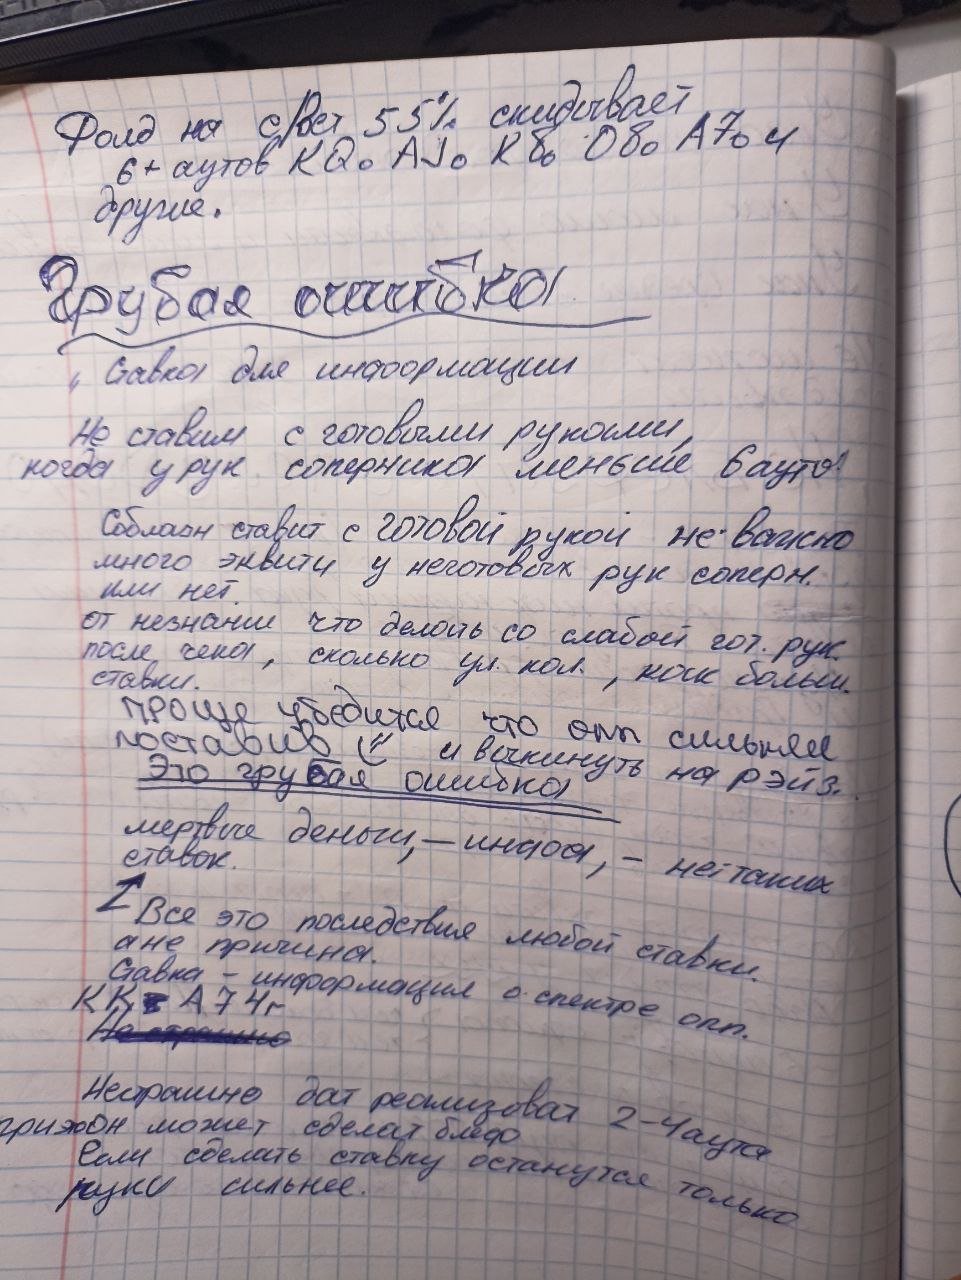 Фолд на с/бет 55% скидывает
6+ аутов KQo AJo K8o A7o и
другие.
Грубая ошибка
Ставка для информации
Не ставим с готовыми руками,
когда у рук соперника меньше 6 аут
Соблазн ставит с готовой рукой не важно
много эквити у неготовых рук соперн.
или нет.
от незнание что делать со слабой гот. рук.
после чека, сколько ул. кол., как больш.
ставки.
проще убедится что опп сильнее
поставив и выкинуть на рэйз.
Это грубая ошибка
мертвые деньги, – инфа, – нет таких
ставок.
Все это последствия любой ставки.
а не причина.
Ставка – информация о спектре опп.
KK A74r
Нестрашно дат реализоват 2-4 аута
при этом он может сделат блеф
Если сделать ставку останутся только
руки сильнее.